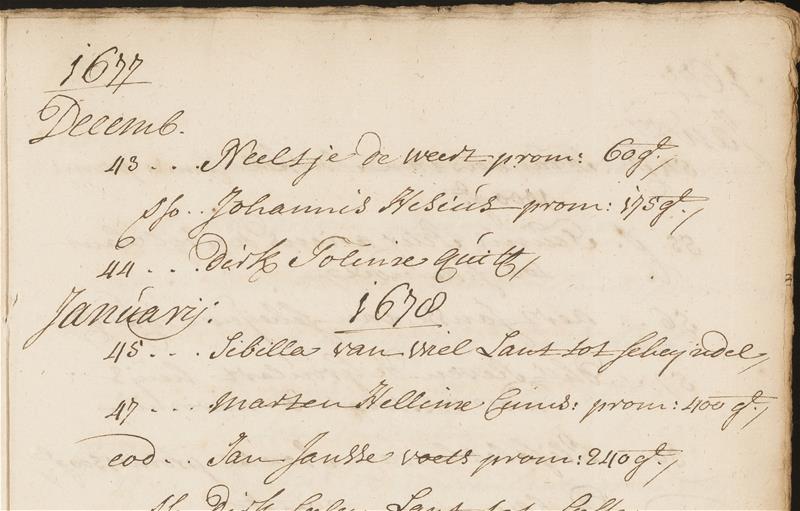 1677
Decemb.
43 . . . Neeltje de weert prom: 60 gl.,
sso . . Johannis Hesius prom: 175 gl.,
44 . . . Dirk Tolinx quitt,
Januarij: 1678
45 . . . Sibilla van viel Lant tot scheijndel,
47 . . . Marten Hellinx cums: prom: 400 gl.,
eod . . Jan Jansse voets prom: 240 gl.,
Dirk Lant tot